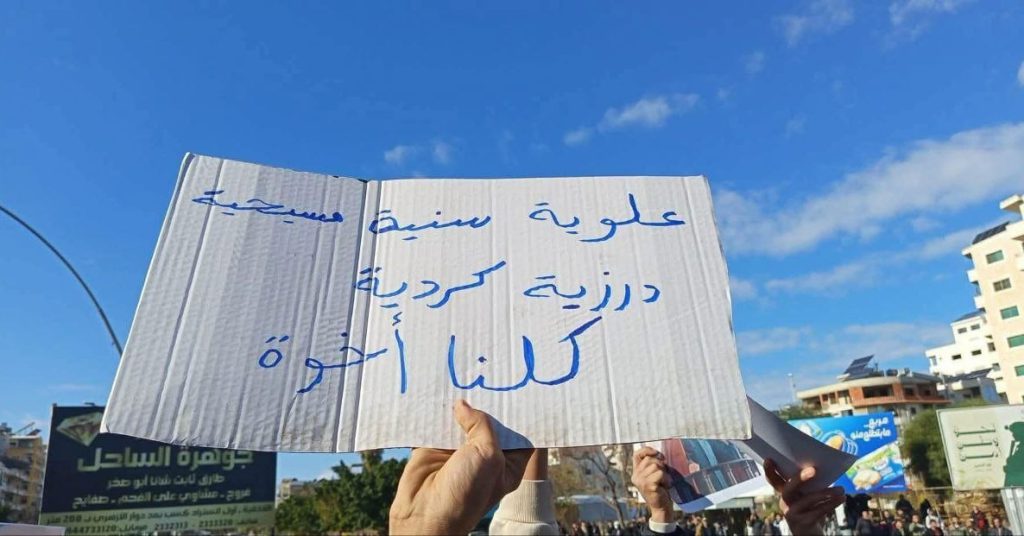 علوية سنية مسيحية
درزية كردية
كلنا أخوة
جوهرة الساحل
طارق ثابت شانا أبو صخر
فروج . مشاوي على الفحم . صفايح
مربع..